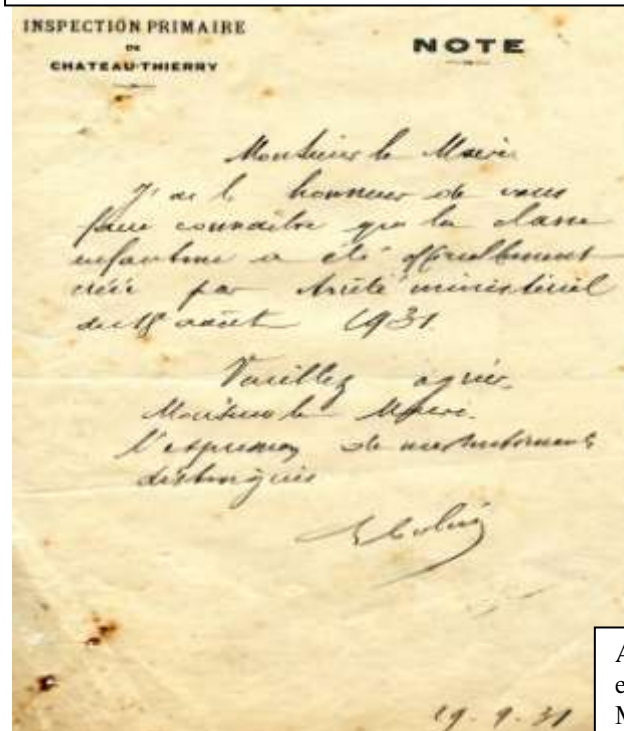 INSPECTION PRIMAIRE
DE
CHATEAU-THIERRY
NOTE
Monsieur le Maire
J'ai l'honneur de vous
faire connaître que la classe
enfantine a été officiellement
créée par Arrêté ministériel
du 18 août 1931.
Veuillez agréer,
Monsieur le Maire,
l'expression de mes sentiments
distingués
19.9.31
A
e
M